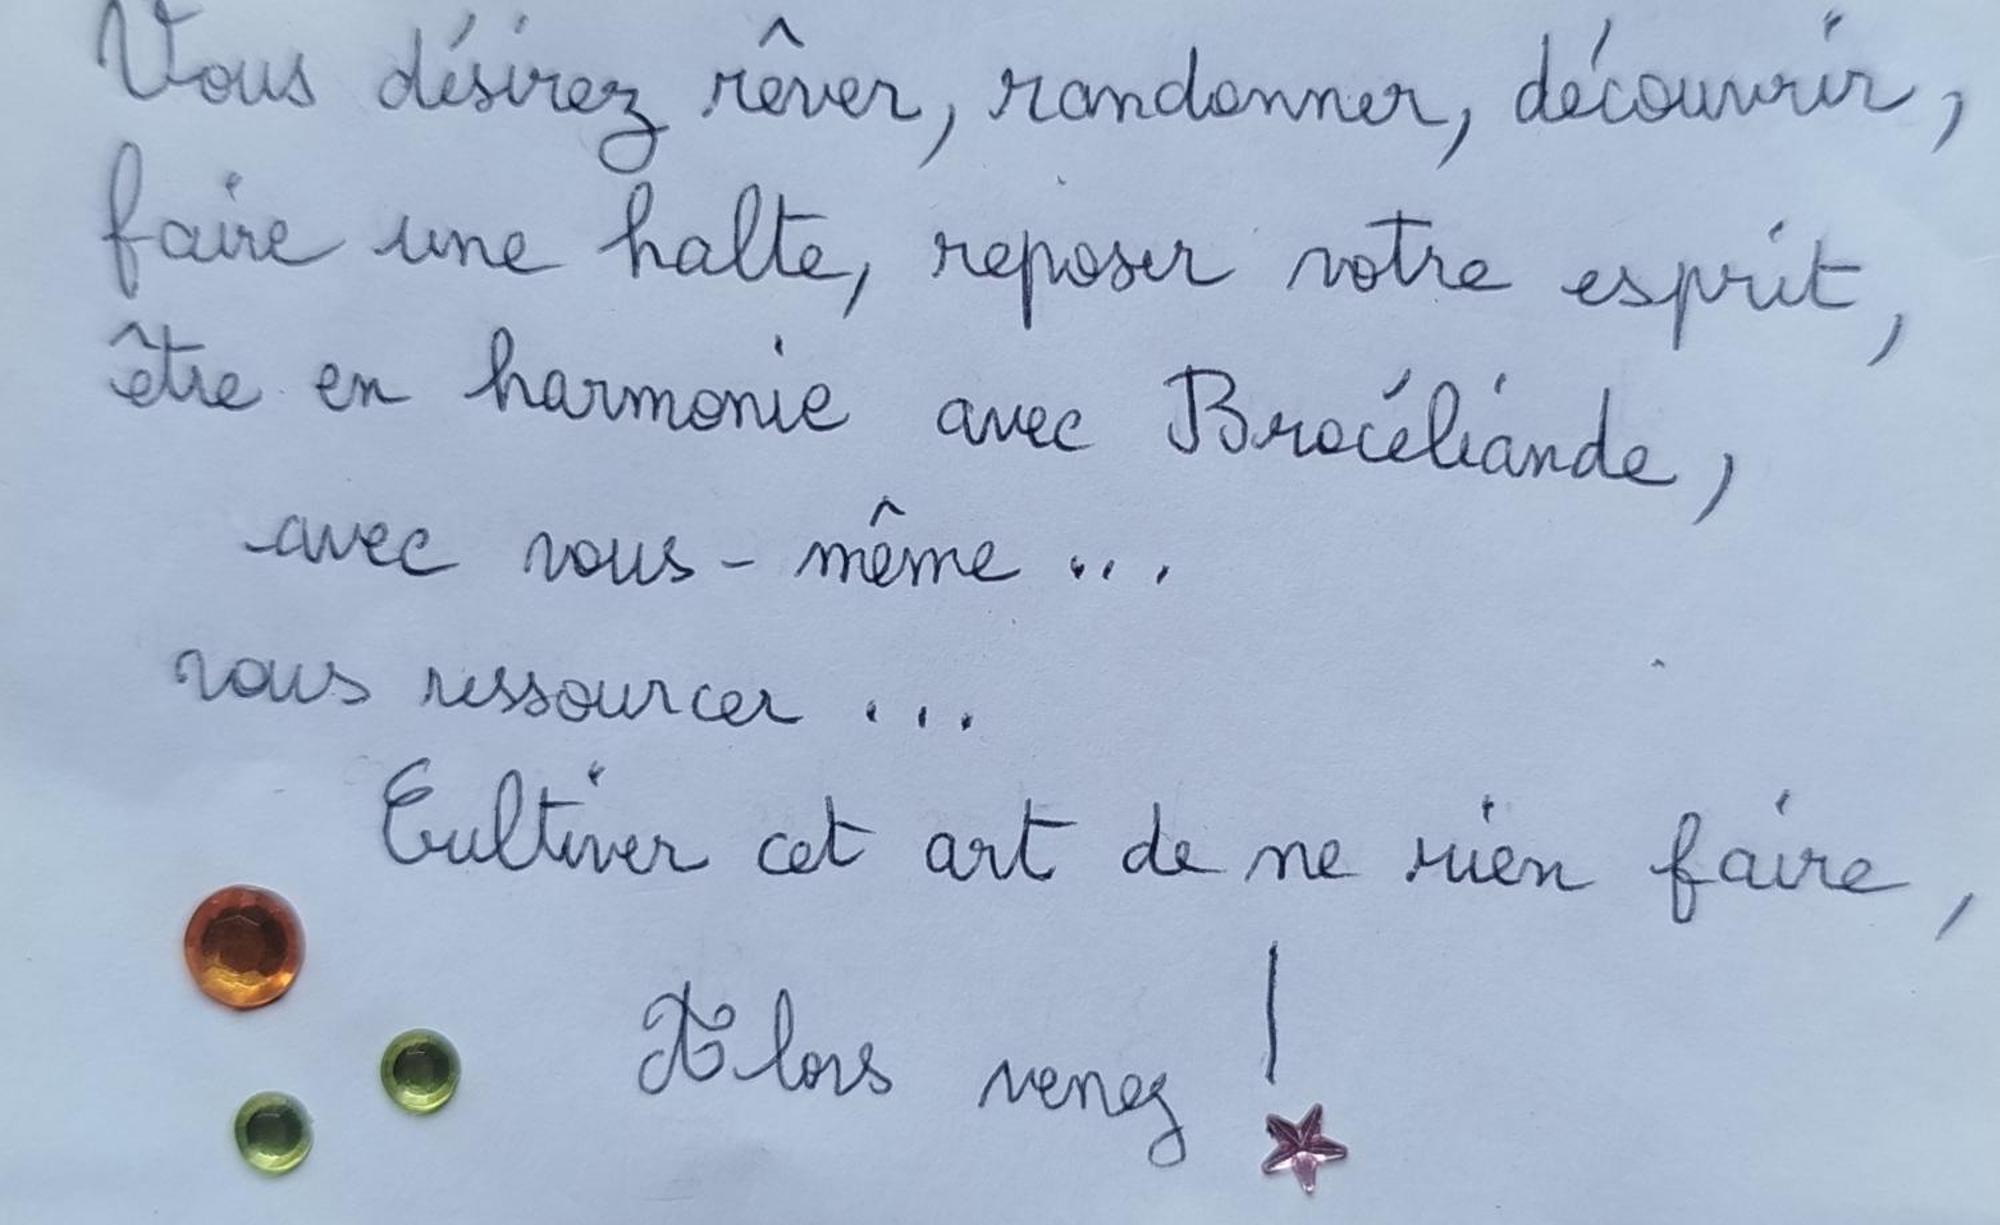 Vous désirez rêver, randonner, découvrir,
faire une halte, reposer votre esprit,
être en harmonie avec Brocéliande,
avec vous-même...
vous ressourcer...
Cultiver cet art de ne rien faire,
Alors venez !